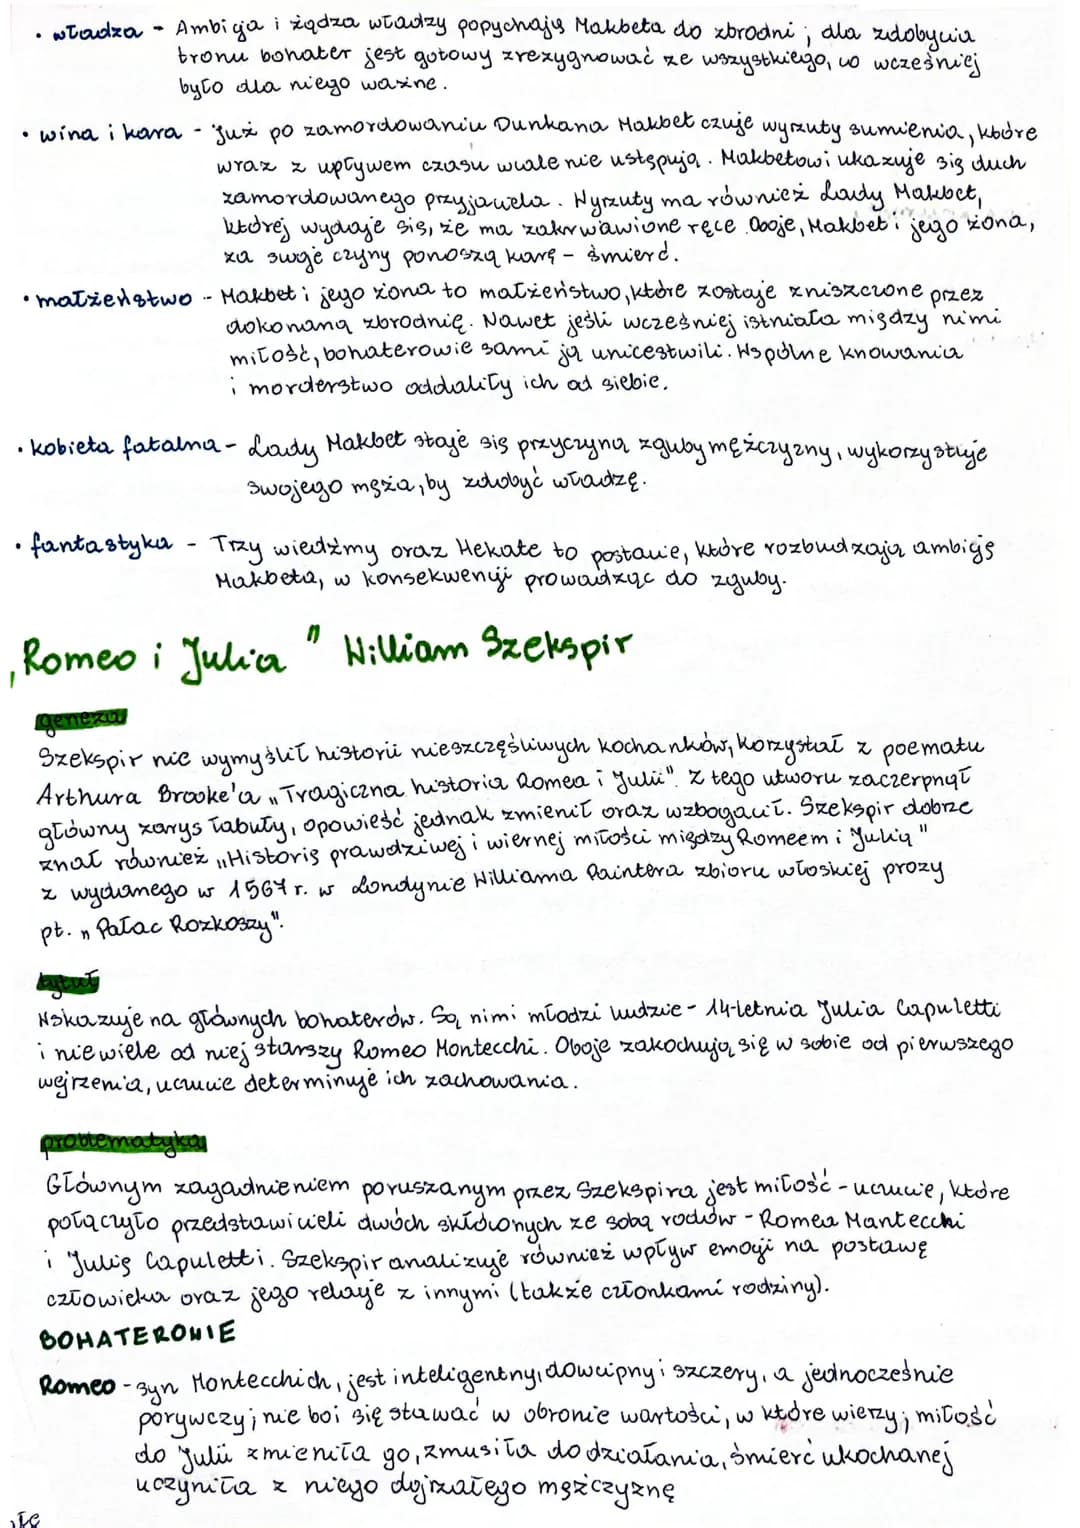 • władza - Ambicja i żądza władzy popychają Makbeta do zbrodni; dla zdobycia
tronu bohater jest gotowy zrezygnować ze wszystkiego, co wcześniej
było dla niego ważne.
• wina i kara - Już po zamordowaniu Dunkana Makbet czuje wyrzuty sumienia, które
wraz z upływem czasu wcale nie ustępują. Makbetowi ukazuje się duch
zamordowanego przyjaciela. Wyrzuty ma również Lady Makbet,
której wydaje się, że ma zakrwawione ręce. Oboje, Makbet i jego żona,
za swoje czyny ponoszą karę - śmierć.
• małżeństwo - Makbet i jego żona to małżeństwo, które zostaje zniszczone przez
dokonaną zbrodnię. Nawet jeśli wcześniej istniała między nimi
miłość, bohaterowie sami ją unicestwili. Wspólne knowania
i morderstwo oddaliły ich od siebie.
• kobieta fatalna - Lady Makbet staje się przyczyną zguby mężczyzny, wykorzystuje
swojego męża, by zdobyć władzę.
• fantastyka - Trzy wiedźmy oraz Hekate to postacie, które rozbudzają ambicję
Makbeta, w konsekwencji prowadząc do zguby.
„Romeo i Julia" William Szekspir
geneza
Szekspir nie wymyślił historii nieszczęśliwych kochanków, korzystał z poematu
Arthura Brooke'a „Tragiczna historia Romea i Julii". Z tego utworu zaczerpnął
główny zarys fabuły, opowieść jednak zmienił oraz wzbogacił. Szekspir dobrze
znał również „Historię prawdziwej i wiernej miłości między Romeem i Julią"
z wydanego w 1567 r. w Londynie Williama Paintera zbioru włoskiej prozy
pt. „Pałac Rozkoszy".
tytuł
Wskazuje na głównych bohaterów. Są nimi młodzi ludzie - 14-letnia Julia Capuletti
i niewiele od niej starszy Romeo Montecchi. Oboje zakochują się w sobie od pierwszego
wejrzenia, uczucie determinuje ich zachowania.
problematyka
Głównym zagadnieniem poruszanym przez Szekspira jest miłość - uczucie, które
połączyło przedstawicieli dwóch skłóconych ze sobą rodów - Romea Montecchi
i Julię Capuletti. Szekspir analizuje również wpływ emocji na postawę
człowieka oraz jego relacje z innymi (także członkami rodziny).
BOHATEROWIE
Romeo - syn Montecchich, jest inteligentny, dowcipny i szczery, a jednocześnie
porywczy; nie boi się stawać w obronie wartości, w które wierzy; miłość
do Julii zmieniła go, zmusiła do działania, śmierć ukochanej
uczyniła z niego dojrzałego mężczyznę